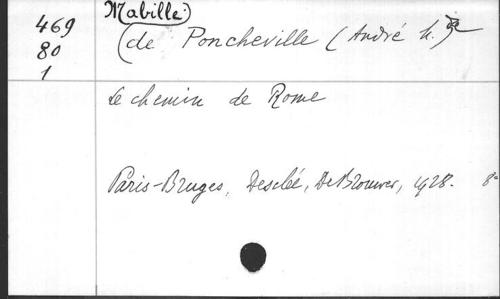 Mabille)
469
80
1
(de Poncheville (André M.)
Le chemin de Rome
Paris-Bruges, Desclée, De Brouwer, 1928. 8º